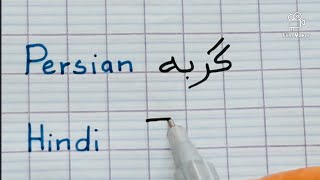 Persian گربه
Hindi